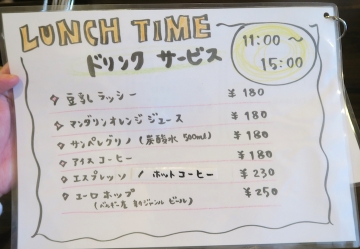 LUNCH TIME
ドリンク サービス
11:00 〜
15:00
豆乳ラッシー ¥180
マンダリンオレンジジュース ¥180
サンペレグリノ (炭酸水 500ml) ¥180
アイスコーヒー ¥180
エスプレッソ / ホットコーヒー ¥230
ユーロホップ ¥250
ビール)